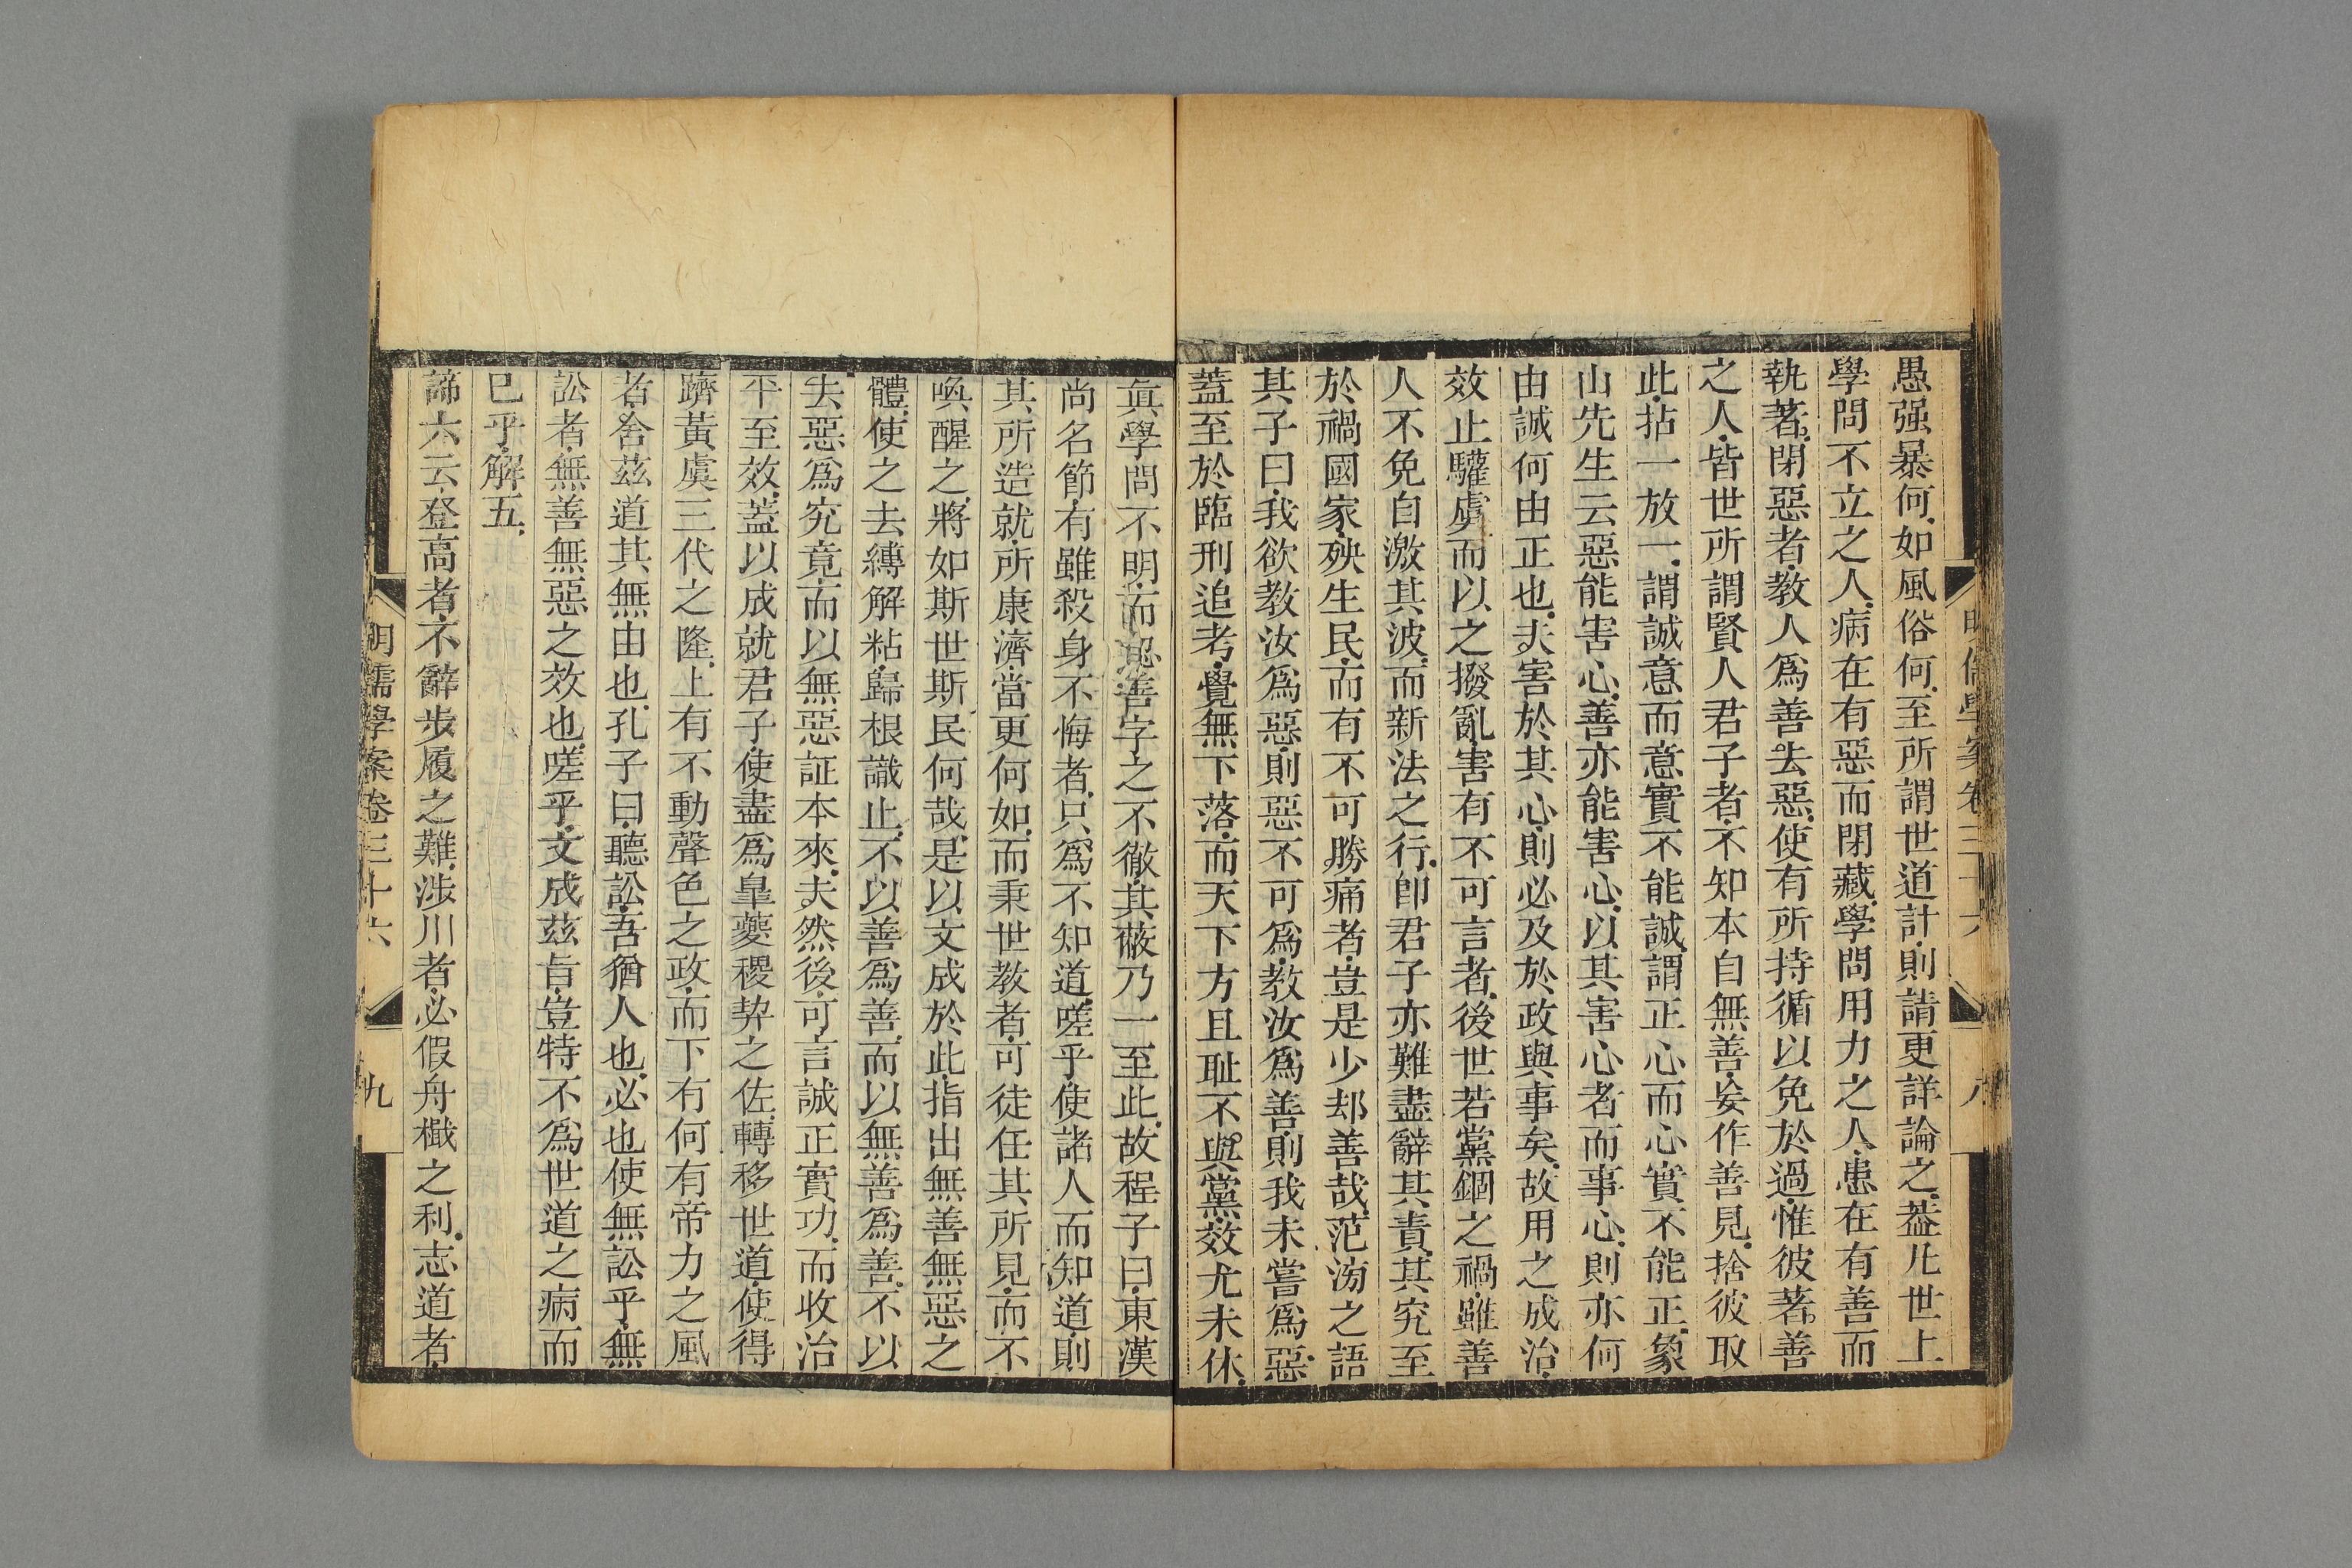 明儒學案卷三十六
八
愚强暴何如風俗何至所謂世道計則請更詳論之葢凡世上
學問不立之人病在有惡而閉藏學問用力之人患在有善而
執著閉惡者教人爲善去惡使有所持循以免於過惟彼著善
之人皆世所謂賢人君子者不知本自無善妄作善見捨彼取
此拈一放一謂誠意而意實不能誠謂正心而心實不能正象
山先生云惡能害心善亦能害心以其害心者而事心則亦何
由誠何由正也夫害於其心則必及於政與事矣故用之成治
效止驩虞而以之撥亂害有不可言者後世若黨錮之禍雖善
人不免自激其波而新法之行卽君子亦難盡辭其責其究至
於禍國家殃生民而有不可勝痛者豈是少却善哉范滂之語
其子曰我欲教汝爲惡則惡不可爲教汝爲善則我未嘗爲惡
蓋至於臨刑追考覺無下落而天下方且耻不與黨效尤未休
眞學問不明而認善字之不徹其蔽乃一至此故程子曰東漢
尚名節有雖殺身不悔者只爲不知道嗟乎使諸人而知道則
其所造就所康濟當更何如而秉世教者可徒任其所見而不
喚醒之將如斯世斯民何哉是以文成於此指出無善無惡之
體使之去縛解粘歸根識止不以善爲善而以無善爲善不以
去惡爲究竟而以無惡証本來夫然後可言誠正實功而收治
平至效蓋以成就君子使盡爲皐夔稷契之佐轉移世道使得
躋黃虞三代之隆上有不動聲色之政而下有何有帝力之風
者舍茲道其無由也孔子曰聽訟吾猶人也必也使無訟乎無
訟者無善無惡之效也嗟乎文成茲旨豈特不爲世道之病而
已乎解五
諦六云登高者不辭步履之難涉川者必假舟檝之利志道者
明儒學案卷三十六
九